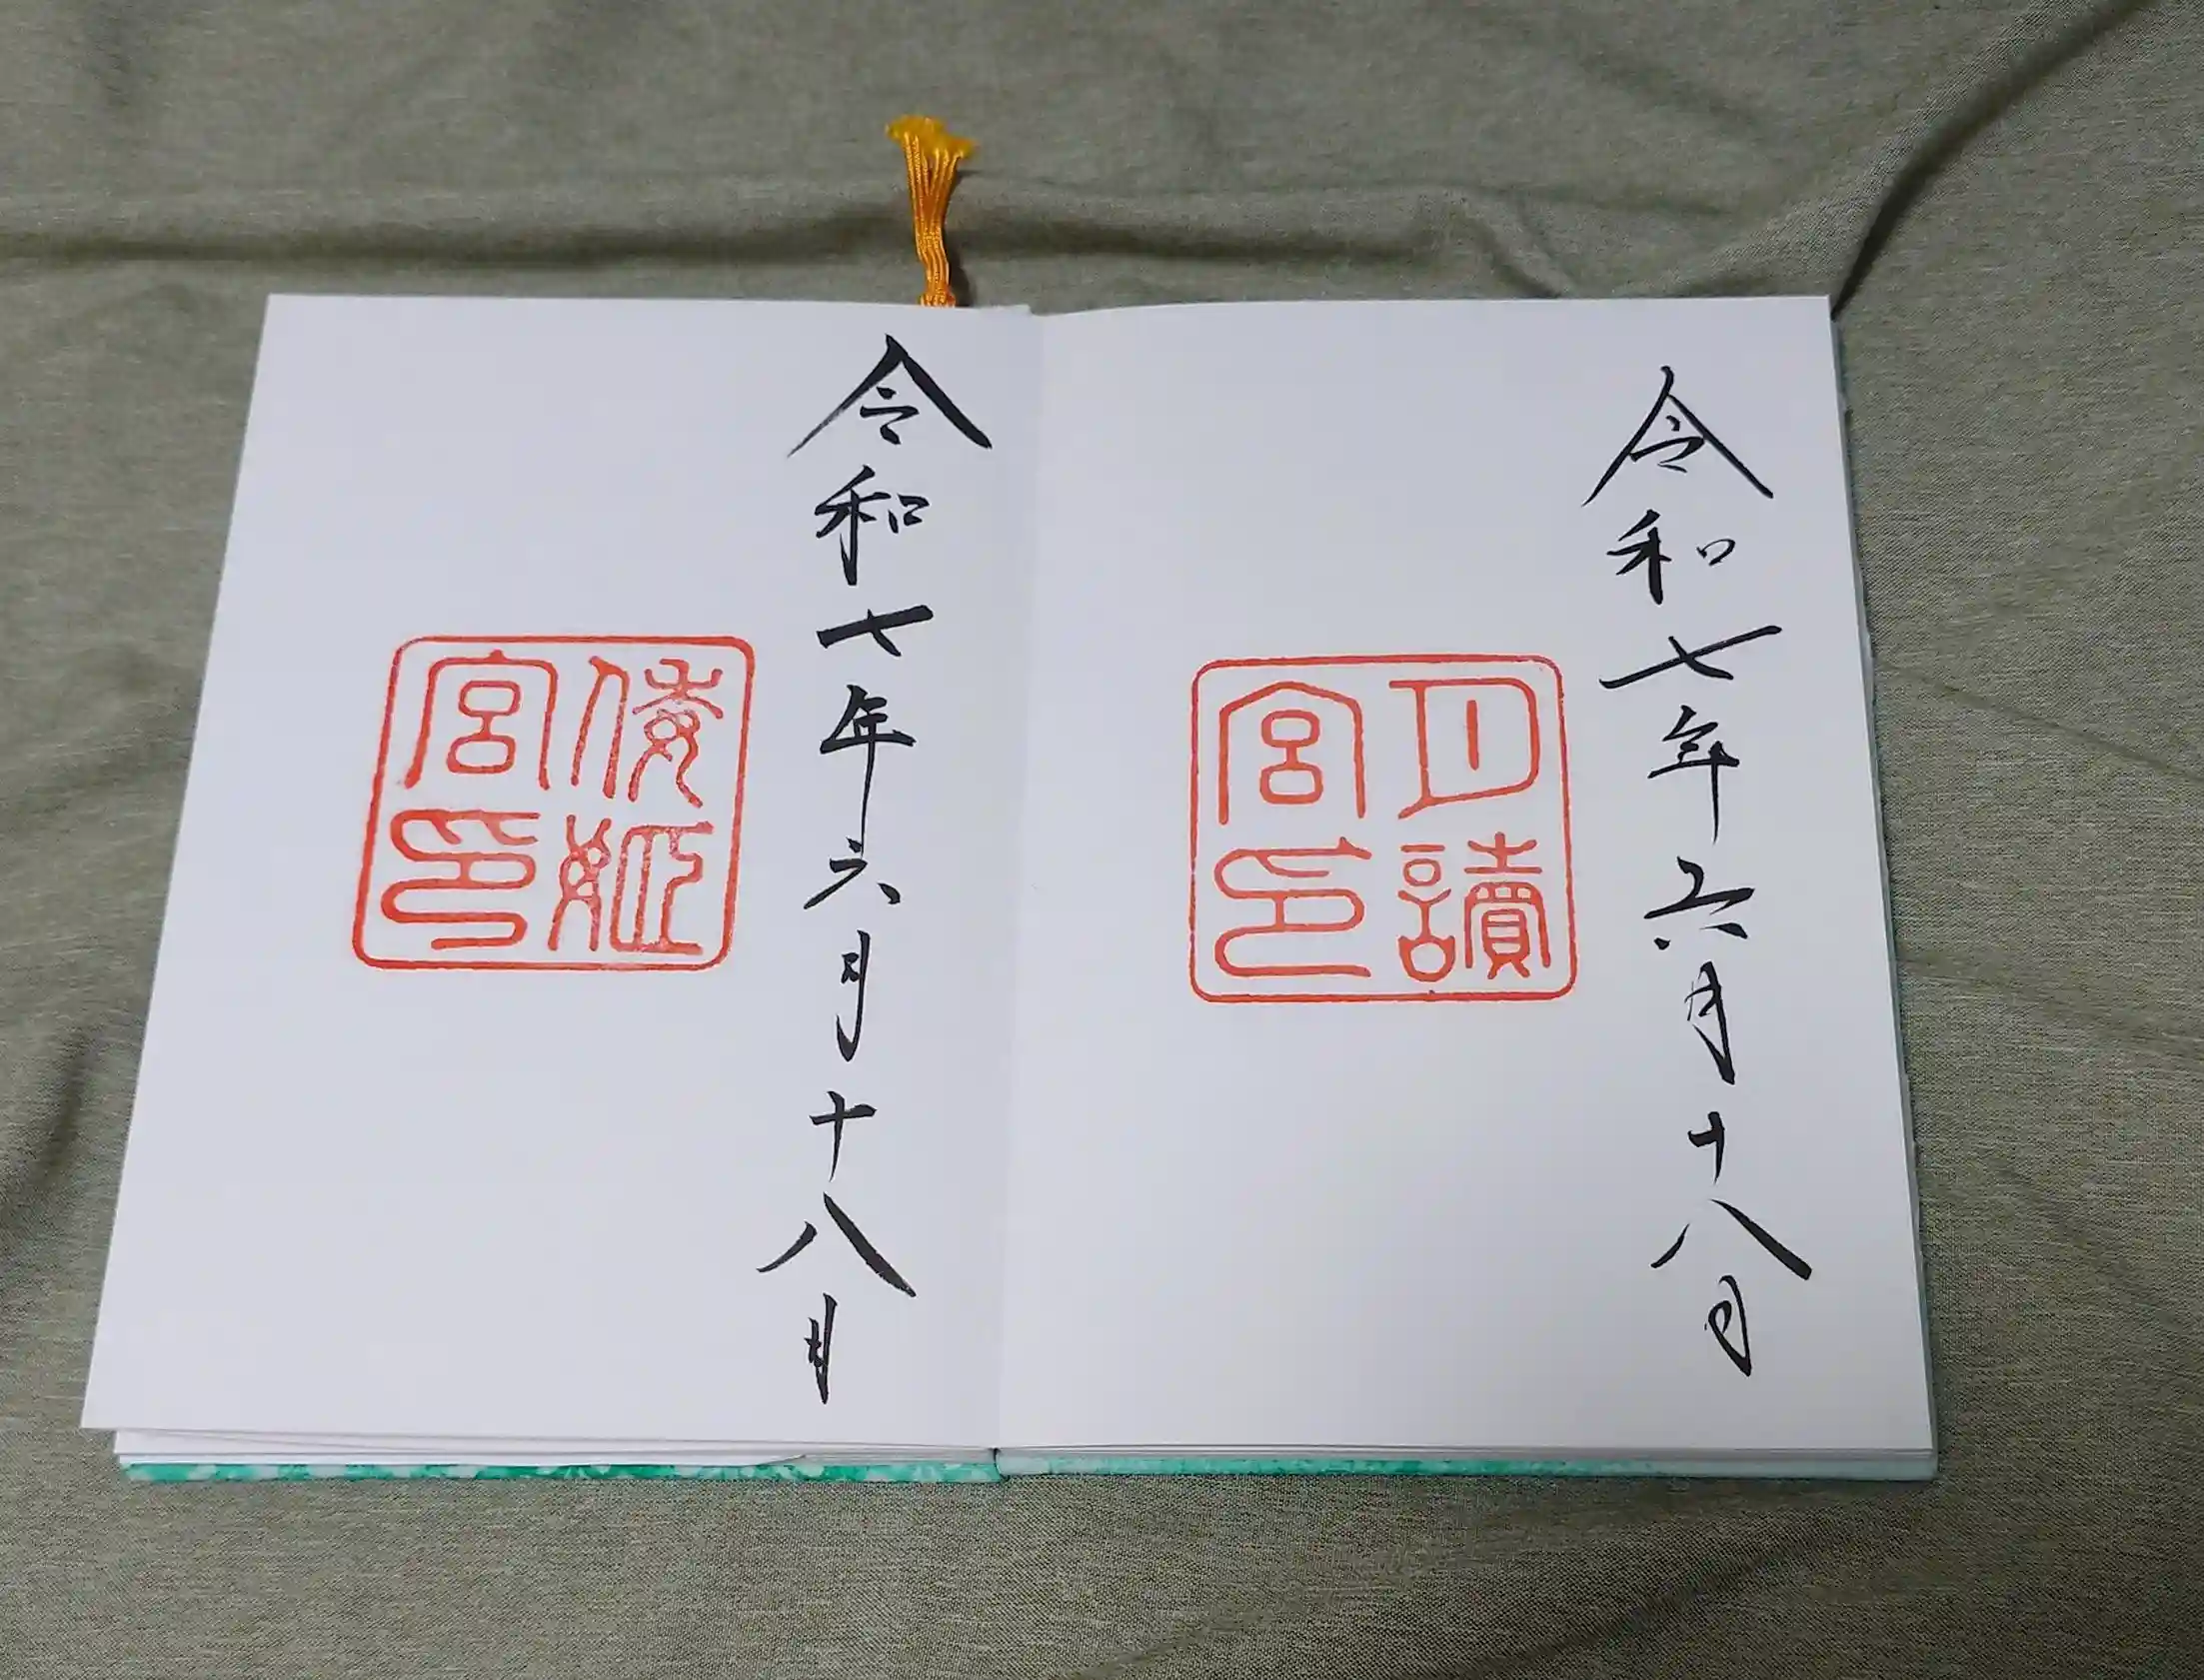 令和七年六月十八日
月讀
宮印
令和七年六月十八日
倭姫
宮印